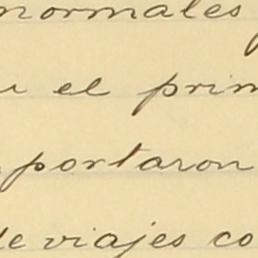 normales
el prim
portaron
de viajes co